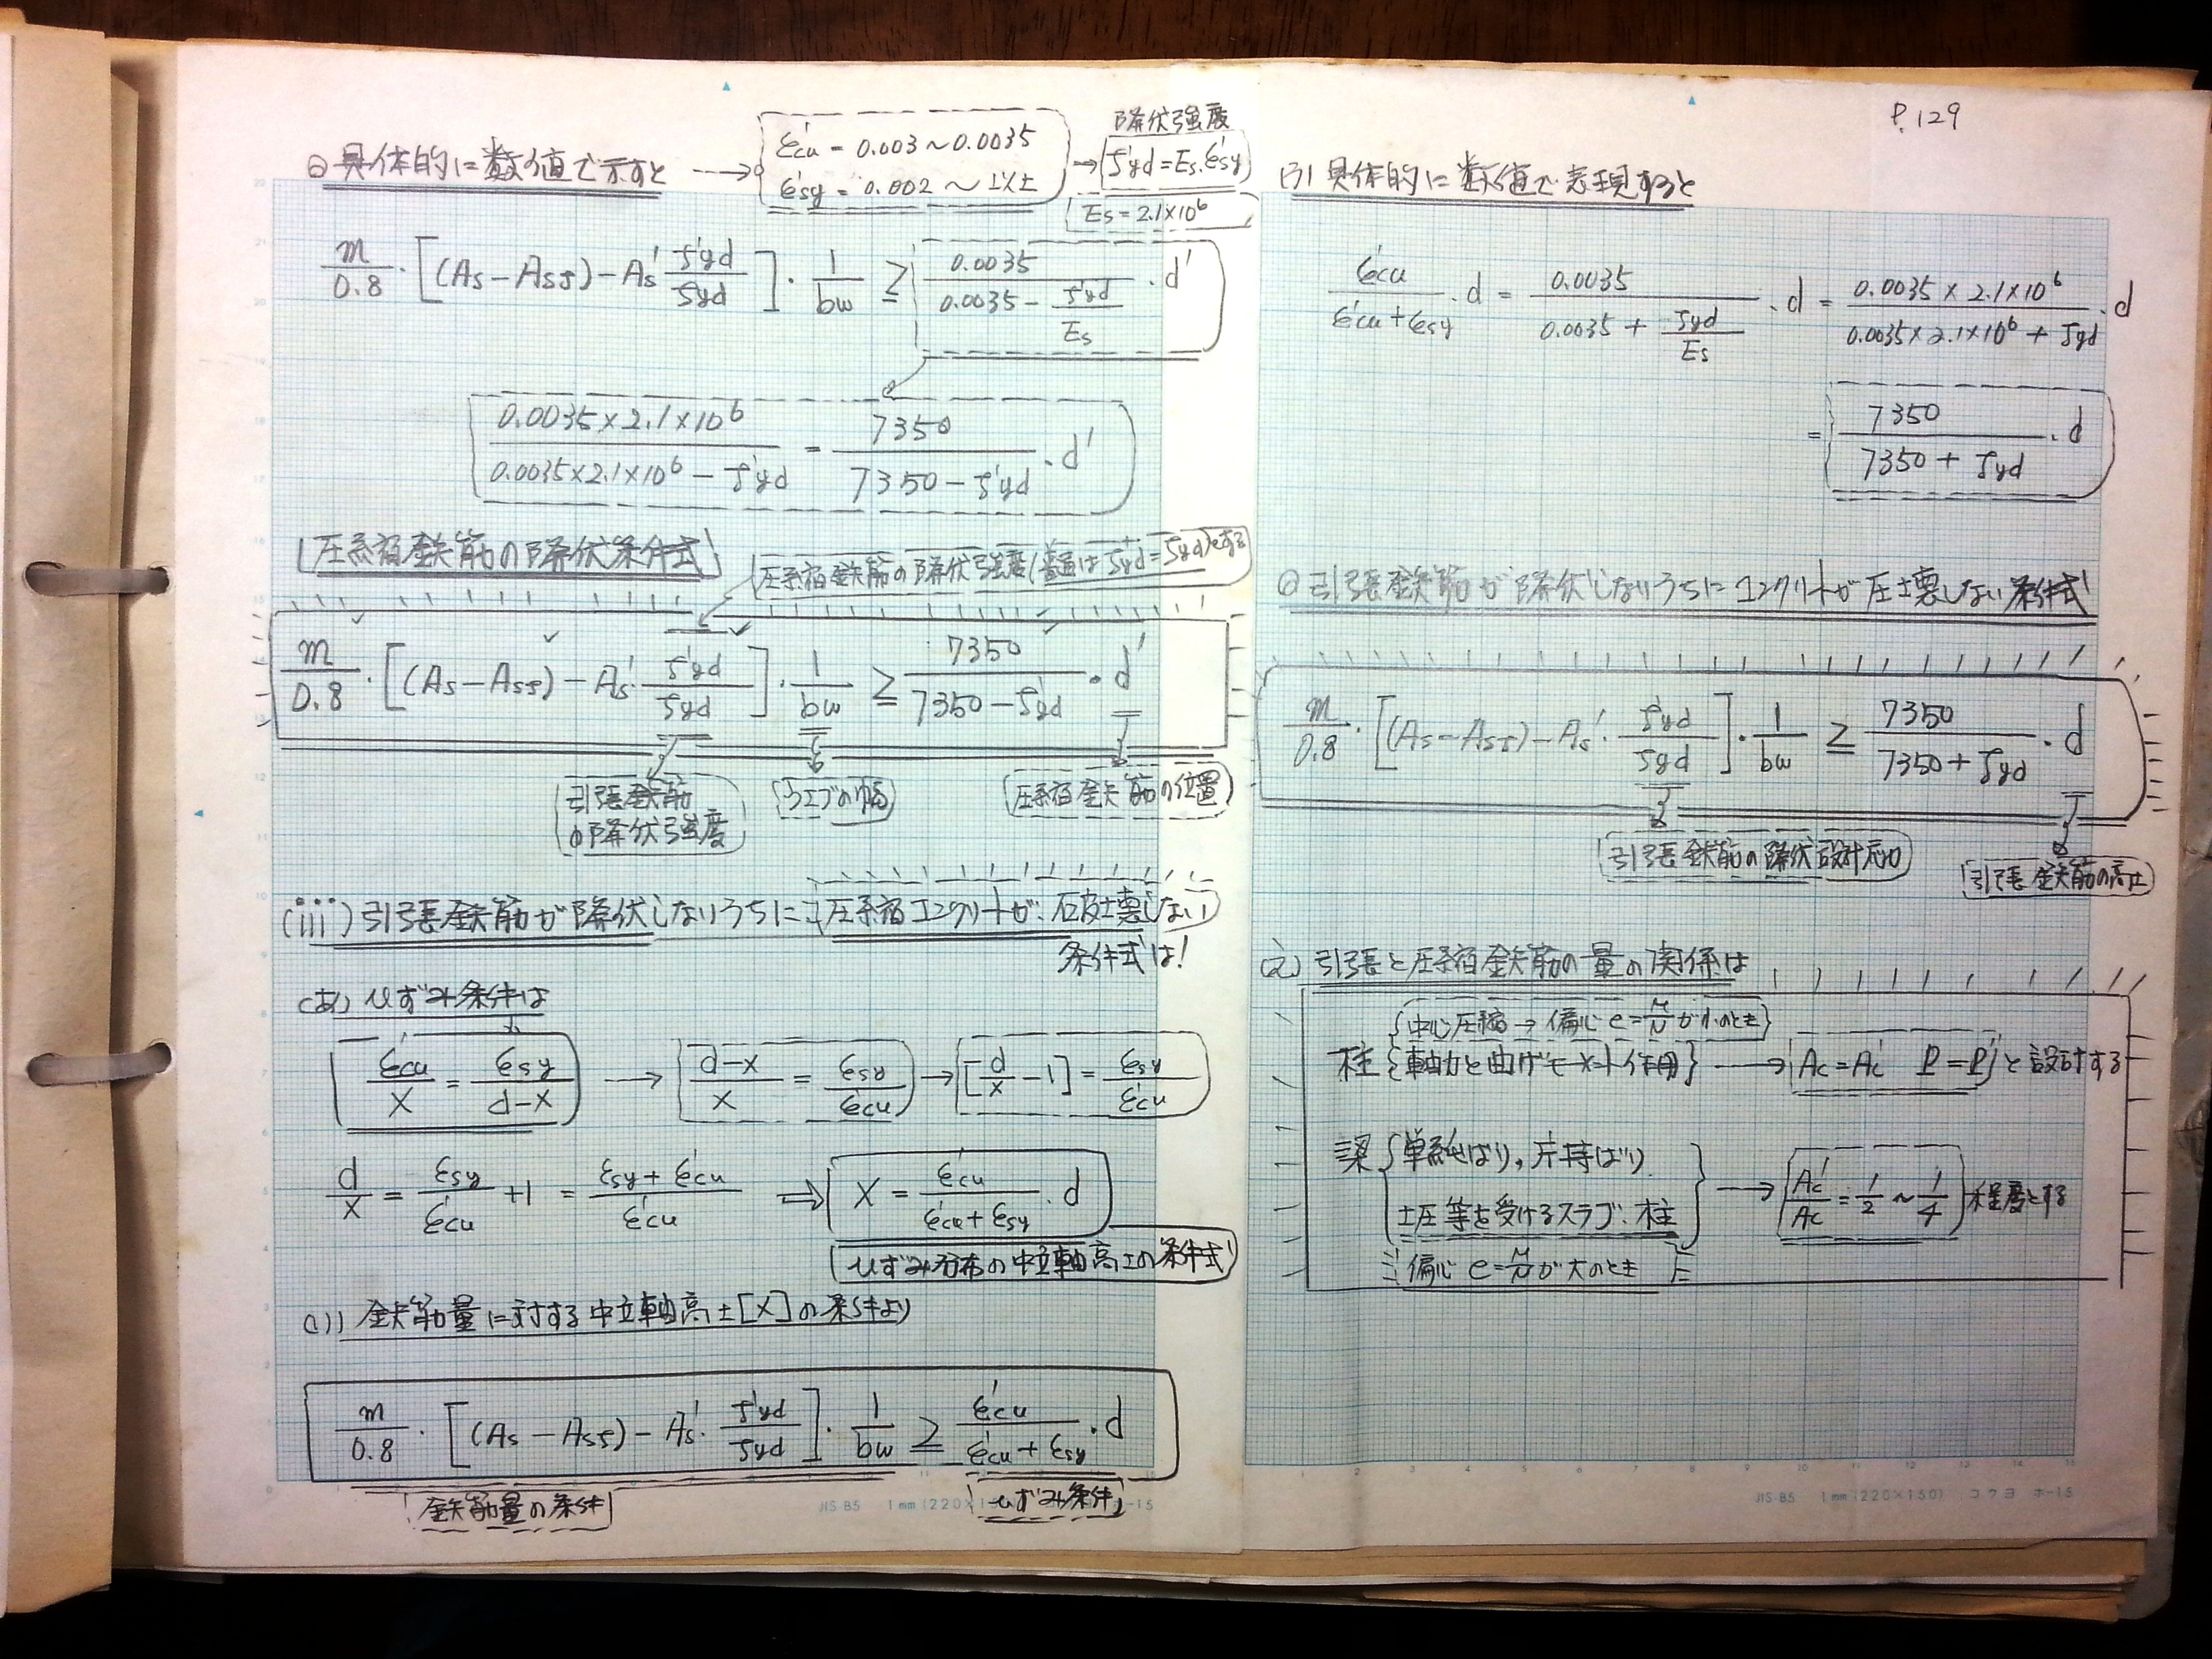 P.129
具体的に数値で示すと → ε'cu = 0.003 ~ 0.0035
ε'sy = 0.002 ~ 以上
降伏強度
→ f'yd = Es・ε'sy
Es = 2.1×10⁶
m/0.8・[(As − Asf) − As' f'yd/fyd]・1/bw ≧ 0.0035/(0.0035 − f'yd/Es)・d'
0.0035×2.1×10⁶/(0.0035×2.1×10⁶ − f'yd) = 7350/(7350 − f'yd)・d'
圧縮鉄筋の降伏条件式
圧縮鉄筋の降伏強度(普通は f'yd = fyd)とする
m/0.8・[(As − Asf) − As'・f'yd/fyd]・1/bw ≧ 7350/(7350 − f'yd)・d'
引張鉄筋
の降伏強度
ウェブの幅
圧縮鉄筋の位置
(iii) 引張鉄筋が降伏しないうちに圧縮コンクリートが、破壊しない
条件式は!
(あ) ひずみ条件は
ε'cu/x = εsy/(d−x) → (d−x)/x = εsy/ε'cu → [d/x − 1] = εsy/ε'cu
d/x = εsy/ε'cu + 1 = (εsy + ε'cu)/ε'cu ⇒ x = ε'cu/(ε'cu + εsy)・d
ひずみ分布の中立軸高さの条件式
(い) 鉄筋量に対する中立軸高さ[x]の条件より
m/0.8・[(As − Asf) − As'・f'yd/fyd]・1/bw ≧ ε'cu/(ε'cu + εsy)・d
鉄筋量の条件
ひずみ条件
JIS B5 1mm(220×1
ホ-15
(う) 具体的に数値で表現すると
ε'cu/(ε'cu + εsy)・d = 0.0035/(0.0035 + fyd/Es)・d = 0.0035×2.1×10⁶/(0.0035×2.1×10⁶ + fyd)・d
= 7350/(7350 + fyd)・d
引張鉄筋が降伏しないうちにコンクリートが圧壊しない条件式
m/0.8・[(As − Asf) − As'・f'yd/fyd]・1/bw ≧ 7350/(7350 + fyd)・d
引張鉄筋の降伏設計応力
引張鉄筋の高さ
(え) 引張と圧縮鉄筋の量の関係は
中心圧縮 → 偏心 e = M/N が小のとき
柱{軸力と曲げモーメント作用} → Ac = Ac' P = P' と設計する
梁{単純ばり,片持ばり
土圧等を受けるスラブ、柱} → Ac'/Ac = 1/2 ~ 1/4 程度とする
偏心 e = M/N が大のとき
JIS B5 1mm(220×150) コクヨ ホ-15